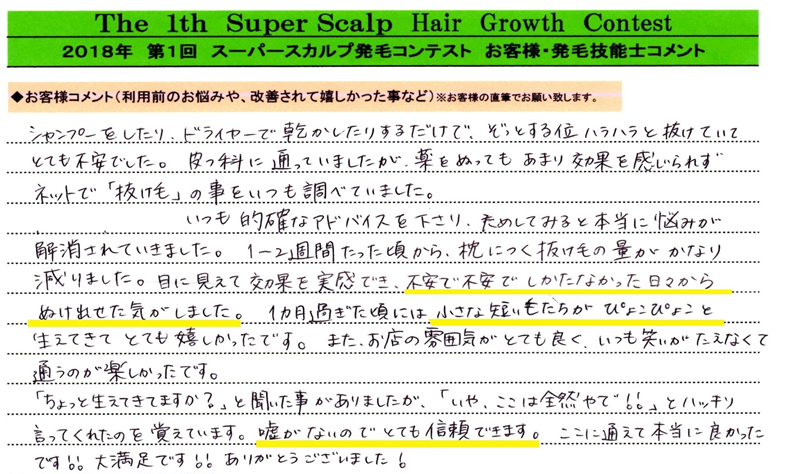 The 1th Super Scalp Hair Growth Contest
2018年 第1回 スーパースカルプ発毛コンテスト お客様・発毛技能士コメント
◆お客様コメント(利用前のお悩みや、改善されて嬉しかった事など)※お客様の直筆でお願い致します。
シャンプーをしたり、ドライヤーで乾かしたりするだけで、ぞっとする位ハラハラと抜けていて
とても不安でした。皮フ科に通っていましたが、薬をぬってもあまり効果を感じられず
ネットで「抜け毛」の事をいつも調べていました。
いつも的確なアドバイスを下さり、ためしてみると本当に悩みが
解消されていきました。1〜2週間たった頃から、枕につく抜け毛の量がかなり
減りました。目に見えて効果を実感でき、不安で不安でしかたなかった日々から
ぬけ出せた気がしました。1カ月過ぎた頃には小さな短い毛たちがぴょこぴょこと
生えてきてとても嬉しかったです。また、お店の雰囲気がとても良く、いつも笑いがたえなくて
通うのが楽しかったです。
「ちょっと生えてきてますか?」と聞いた事がありましたが、「いや、ここは全然やで!!」とハッキリ
言ってくれたのを覚えています。嘘がないのでとても信頼できます。ここに通えて本当に良かった
です!!大満足です!!ありがとうございました!